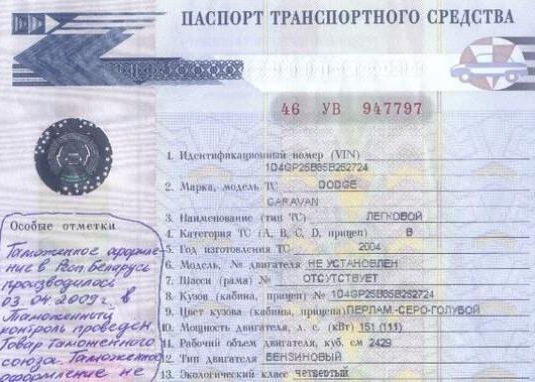 ПАСПОРТ ТРАНСПОРТНОГО СРЕДСТВА
46 УВ 947797
1. Идентификационный номер (VIN)
1D4GP25B85B252724
2. Марка, модель ТС DODGE
CARAVAN
3. Наименование (тип ТС) ЛЕГКОВОЙ
4. Категория ТС (A, B, C, D, прицеп) B
5. Год изготовления ТС 2004
6. Модель, № двигателя НЕ УСТАНОВЛЕН
7. Шасси (рама) № ОТСУТСТВУЕТ
8. Кузов (кабина, прицеп) № 1D4GP25B85B252724
9. Цвет кузова (кабины, прицепа) ПЕРЛАМ.-СЕРО-ГОЛУБОЙ
10. Мощность двигателя, л. с. (кВт) 151 (111)
11. Рабочий объем двигателя, куб. см 2429
12. Тип двигателя БЕНЗИНОВЫЙ
13. Экологический класс четвертый
Особые отметки
Таможенное оформле-
ние в Респ. Беларусь
производилось
03.04.2009г. в
Таможенный
контроль проведен.
Товар Таможенного
союза. Таможенное
оформление не